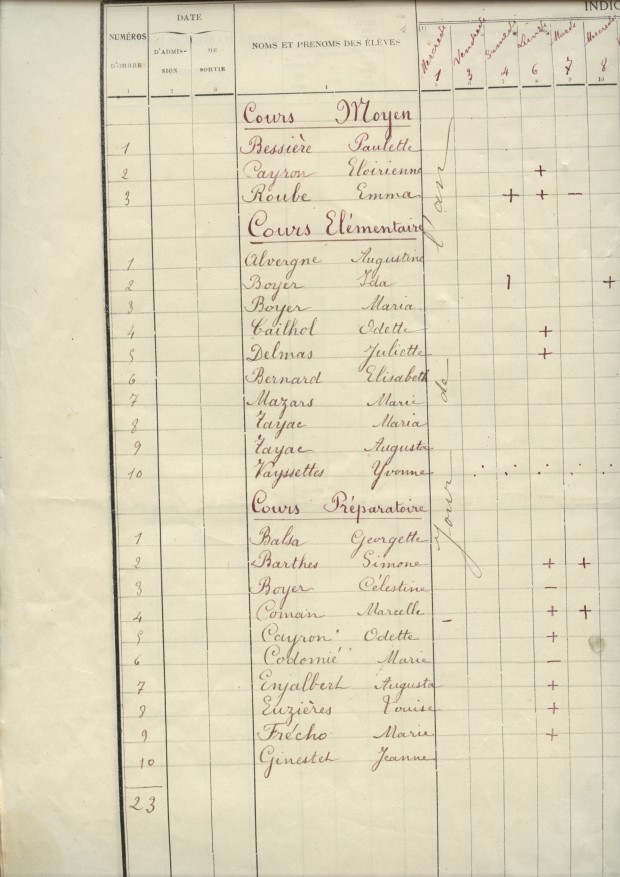 NUMÉROS D'ORDRE DATE D'ADMISSION DE SORTIE NOMS ET PRENOMS DES ÉLÈVES INDIC
Mercredi Vendredi Samedi Lundi Mardi Mercredi
1 3 4 6 7 8
1 2 3 4
Cours Moyen
1 Bessière Paulette
2 Cayron Eloirienne +
3 Roube Emma + + –
Cours Elémentaire
1 Alvergne Augustine
2 Boyer Ida 1 +
3 Boyer Maria
4 Cailhol Odette +
5 Delmas Juliette +
6 Bernard Elisabeth
7 Mazars Marie
8 Tayac Maria
9 Tayac Augusta
10 Vayssettes Yvonne . . . . .
Cours Préparatoire
1 Balsa Georgette
2 Barthes Simone + +
3 Boyer Célestine –
4 Coman Marcelle – + +
5 Cayron Odette +
6 Codomié Marie –
7 Enjalbert Augusta +
8 Euzières Louise +
9 Frécho Marie +
10 Ginestet Jeanne
23
Jour de l'an